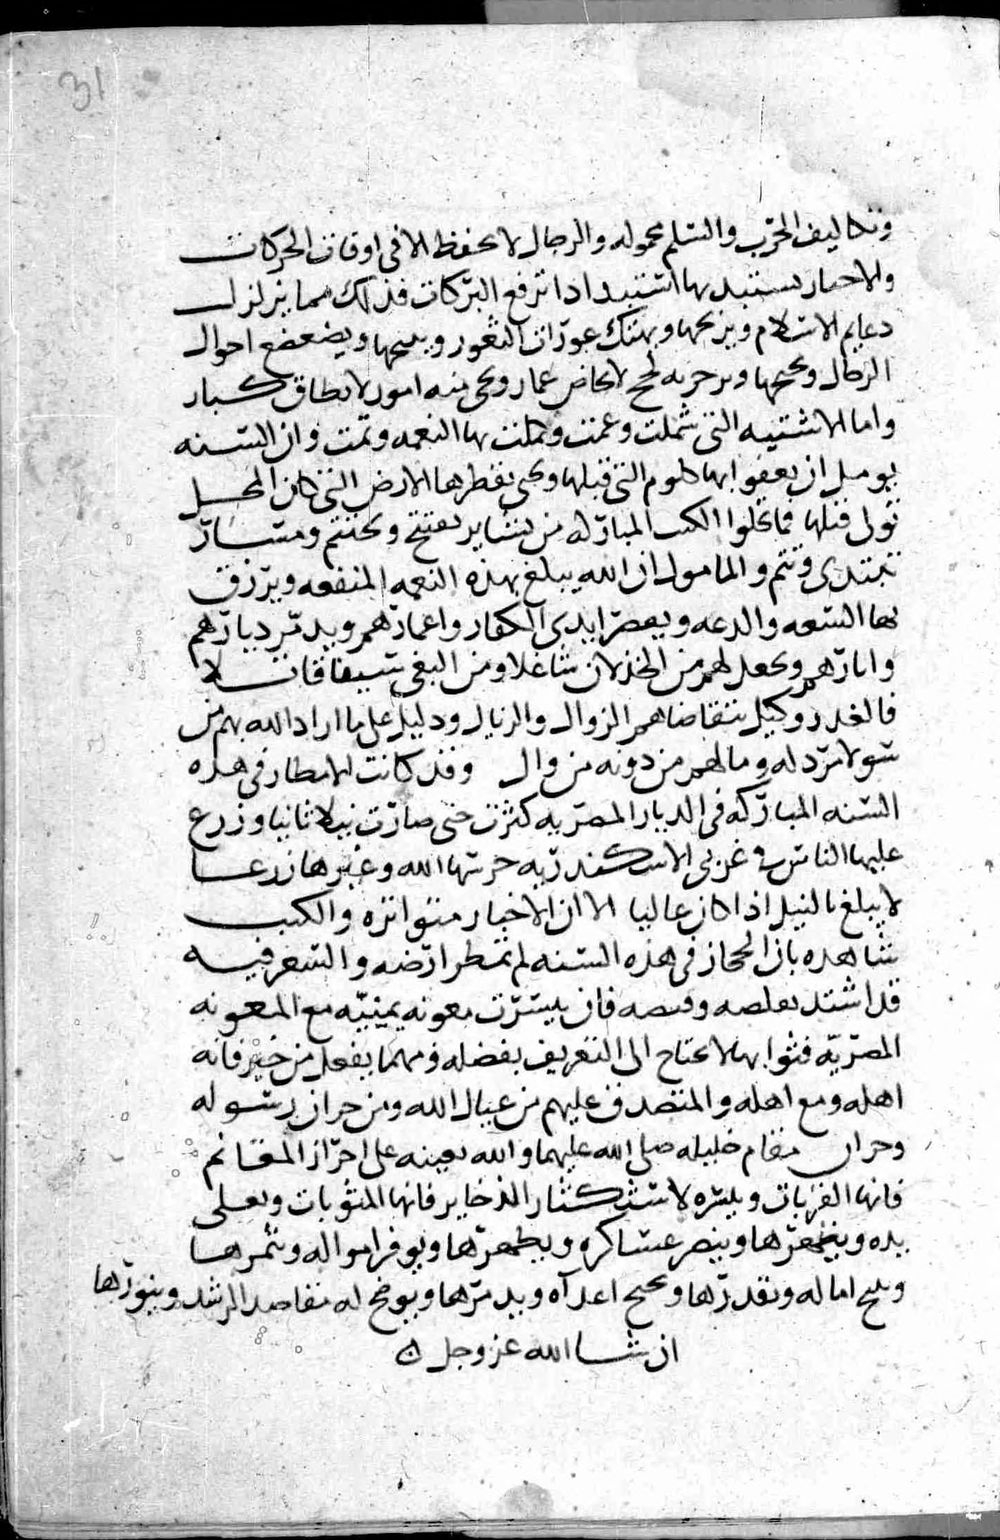 31
وتكاليف الحرب والسلم محموله والرجال لا تحفظ الا فى اوقات الحركات
والاحمار يستبد بها استبيد اذا ترفع البركات فذلك مما يزلزل
دعايم الاسلام ويزيحها ويهتك عورات الثغور ويبيحها ويضعضع احوال
الرجال ويجيحها لا يطاق كبار
واما الاشتيه التى شملت وعمت وكملت بها النعمه وتمت وان السنه
التى قبلها ويحيى بقطرها الارض التى كان المحل
قبلها فما تخلوا الكتب المباركه من بشاير تفتتح وتختتم ومسار
تبتدى وتتم والمامول ان الله يبلغ بهذه النعمه المنفعه ويرزق
بها السعه والدعه ويقصر ايدى الكفار واعمارهم ويدمر ديارهم
واثارهم ويجعل لهم من الخذلان شاغلا ومن البغى سيفا قاتلا
فالغدر وكيل يتقاضاهم الزوال والزيال ودليل على ما اراد الله بهم من
سو لا مرد له وما لهم من دونه من وال وقد كانت الامطار فى هذه
السنه المباركه فى الديار المصريه كثرت حتى صارت نيلا ثانيا وزرع
عليها الناس فى غربى الاسكندريه حرسها الله وغيرها زرعا
لا يبلغ بالنيل اذا كان عاليا الا ان الاخبار متواتره والكتب
شاهده بان الحجاز فى هذه السنه لم تمطر ارضه والسعر فيه
قد اشتد فان يسرت معونه يمنيّه مع المعونه
المصريّه فثوابها لا يحتاج الى التعريف بفضله ومهما يفعل من خير فانه
اهله ومع اهله والمتصدق عليهم من عيال الله ومن جيران رسوله
وجيران مقام خليله صلى الله عليهما والله يعينه على احراز المغانم
فانها القربات ويسره لاستكثار الذخاير فانها المثوبات ويعلى
يده ويظهرها وينصر عساكره ويظهرها ويوفر امواله ويثمرها
امآله ويقدرها اعدآه ويدمرها ويوضح له مقاصد الرشد وينورها
ان شا الله عز وجل